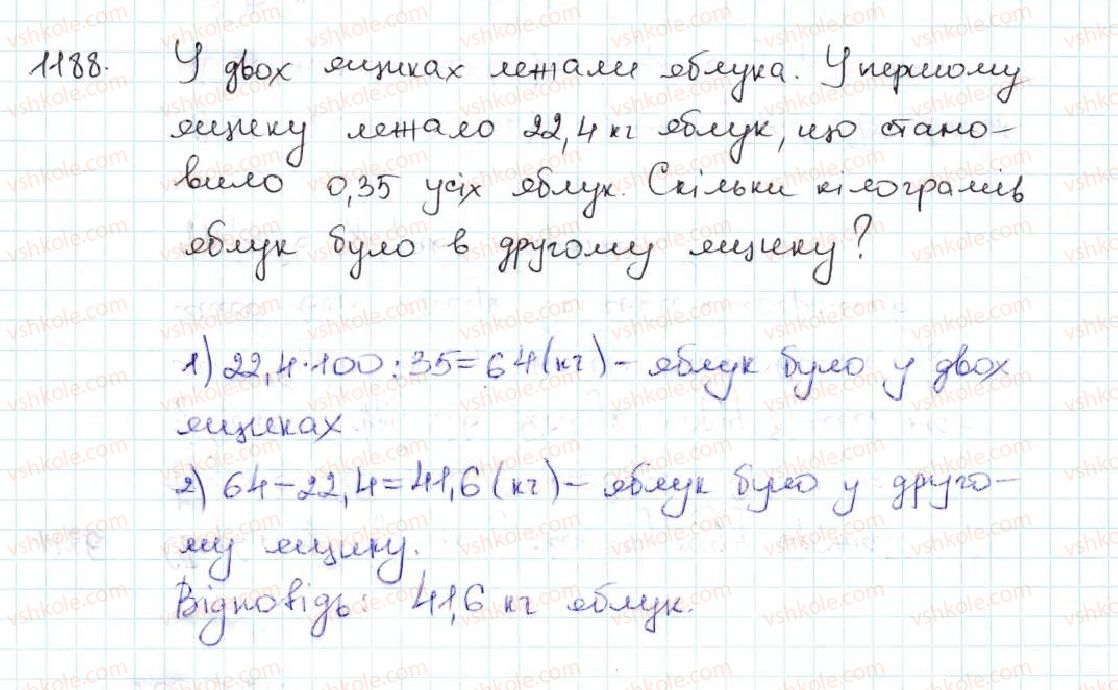 1188. У двох ящиках лежали яблука. У першому
ящику лежало 22,4 кг яблук, що стано-
вило 0,35 усіх яблук. Скільки кілограмів
яблук було в другому ящику?
1) 22,4·100:35=64(кг) – яблук було у двох
ящиках
2) 64–22,4=41,6(кг) – яблук було у друго-
му ящику.
Відповідь: 41,6 кг яблук.